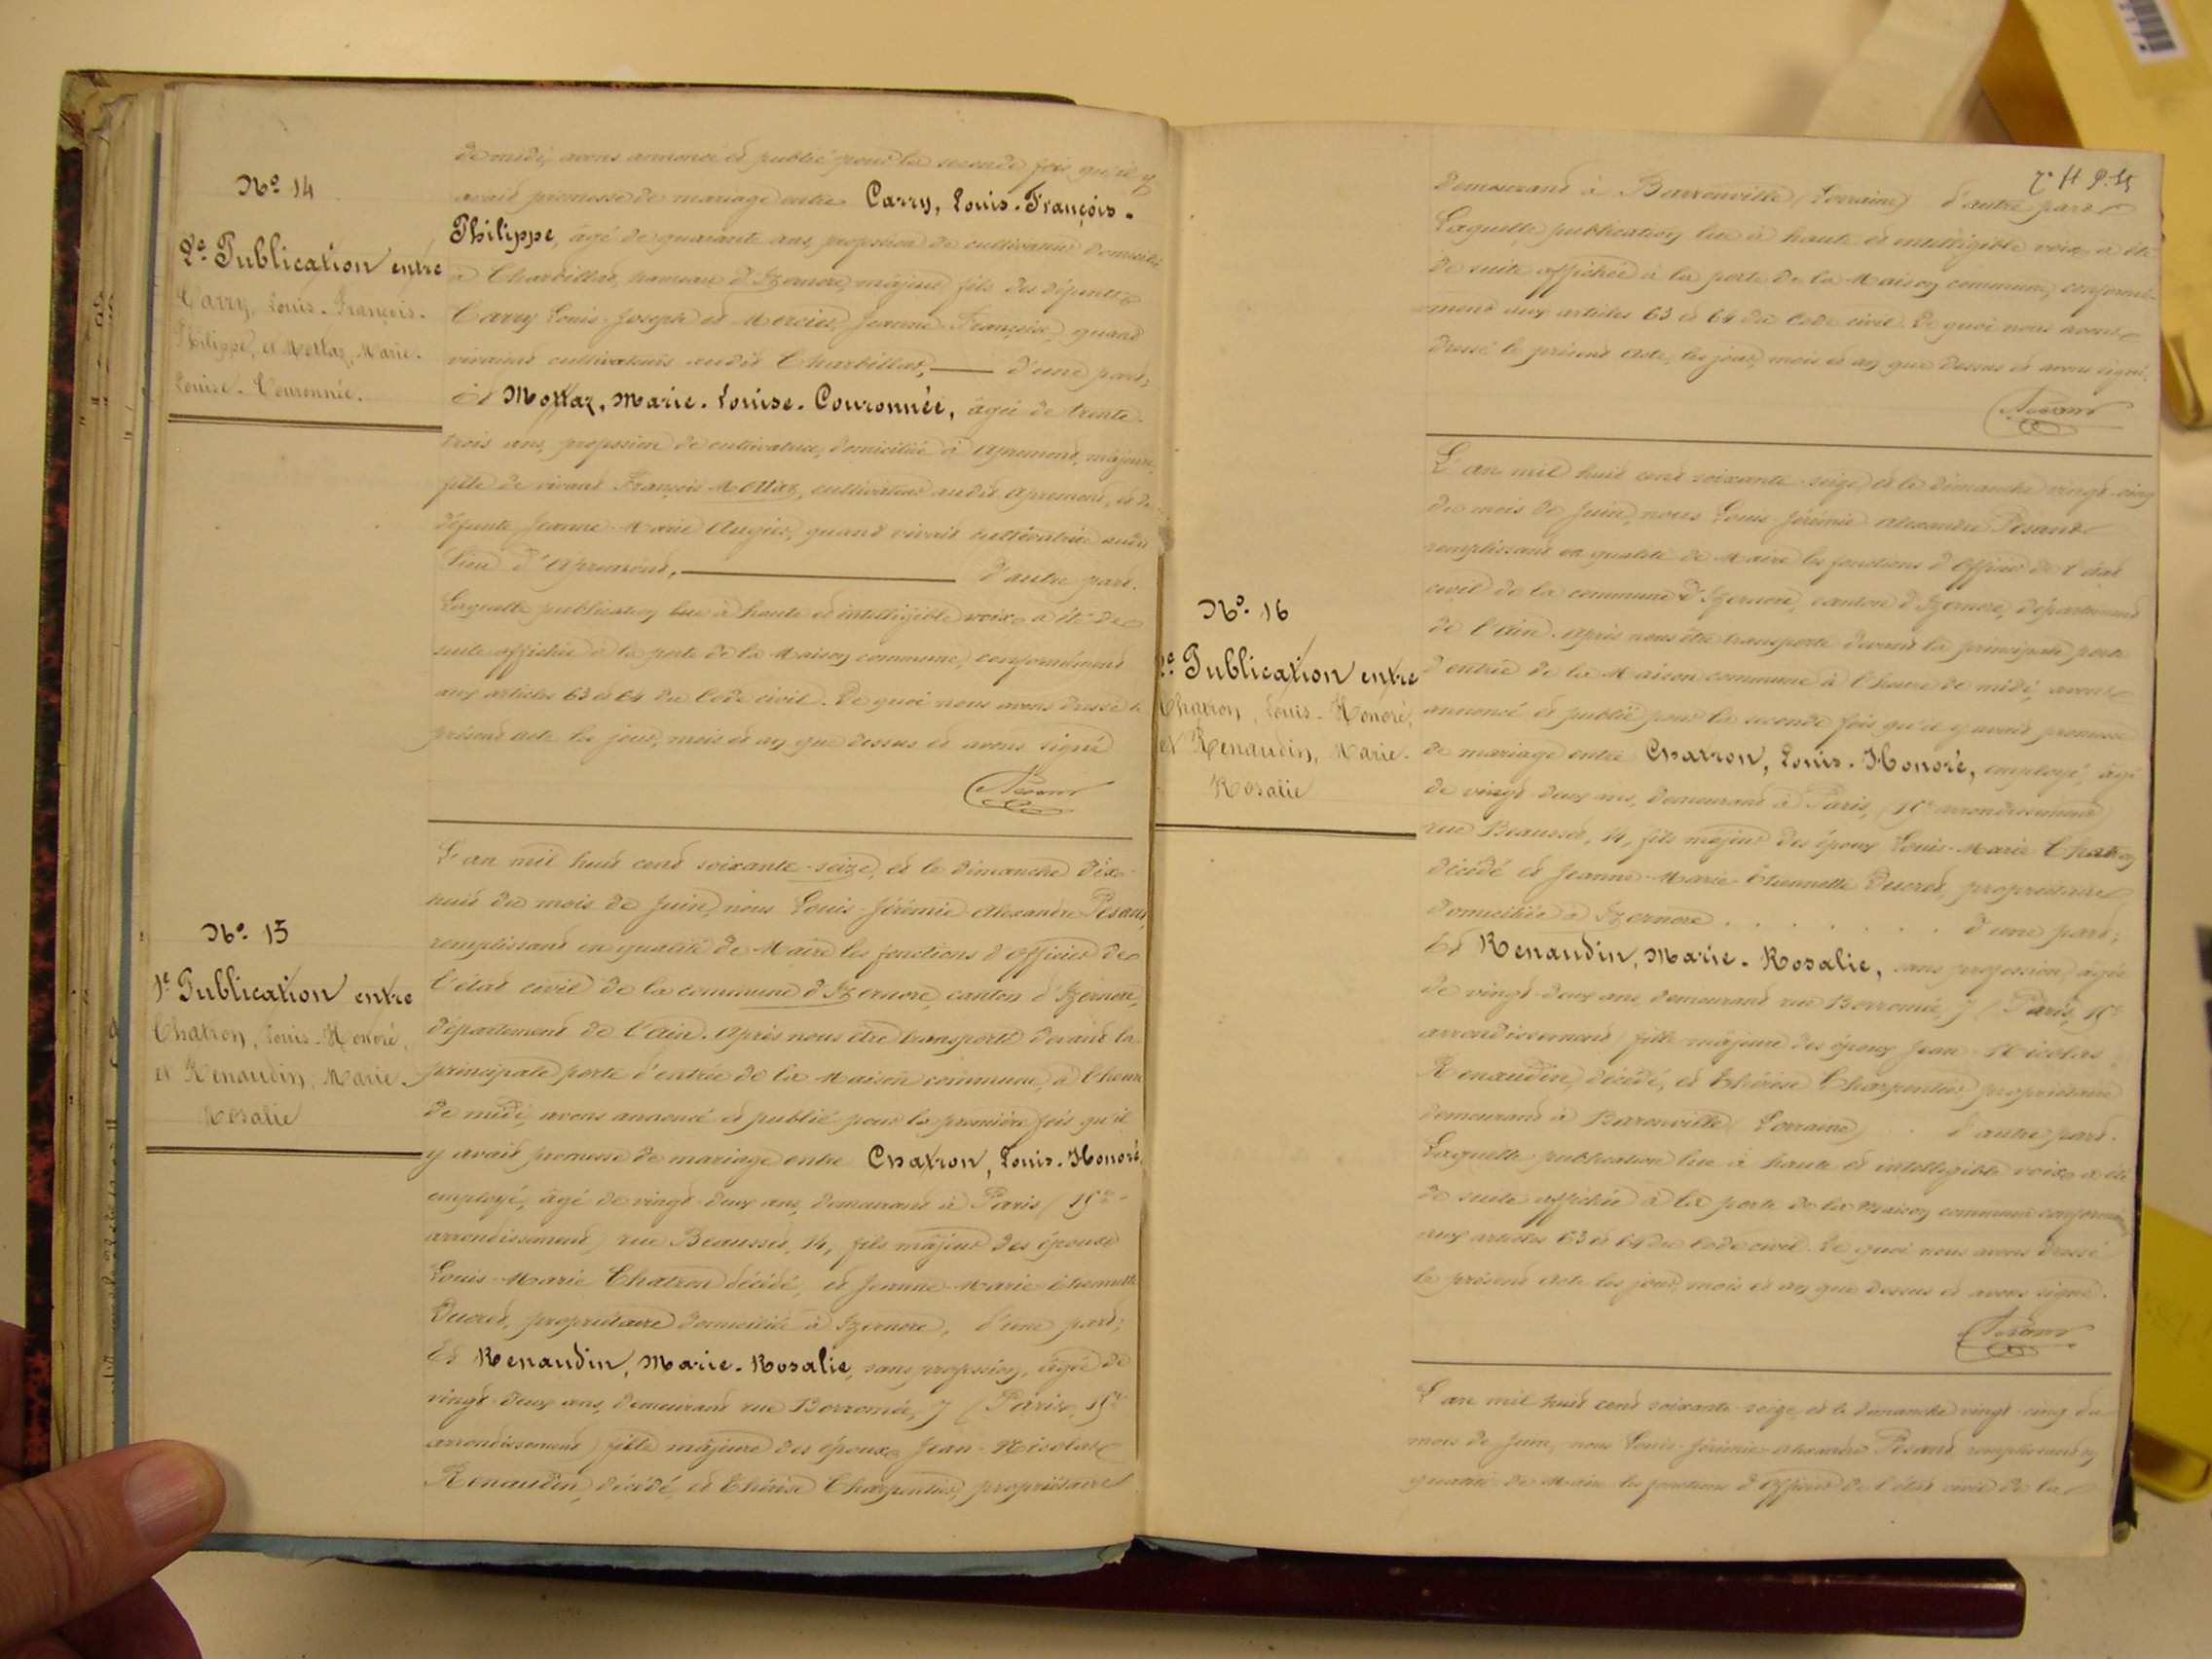 No 14
2e Publication entre
Carry, Louis-François-
Philippe, et Mottaz, Marie-
Louise-Couronnée.
de midi, avons annoncé et publié pour la seconde fois qu'il y
avait promesse de mariage entre Carry, Louis-François-
Philippe, âgé de quarante ans, profession de cultivateur domicilié
à Charbillat, hameau d'Izernore, majeur, fils des défunts
Carry Louis-Joseph et Mercier, Jeanne-Françoise, quand
vivaient cultivateurs audit Charbillat, d'une part;
Et Mottaz, Marie-Louise-Couronnée, âgée de trente-
trois ans, profession de cultivatrice, domiciliée à Apremont, majeure,
fille de vivant François Mottaz, cultivateur audit Apremont, et de
défunte Jeanne-Marie Augier, quand vivait cultivatrice audit
lieu d'Apremont, d'autre part.
Laquelle publication lue à haute et intelligible voix a été de
suite affichée à la porte de la Maison commune, conformément
aux articles 63 et 64 du Code civil. De quoi nous avons dressé le
présent acte les jour, mois et an que dessus et avons signé
Pesant
No 15
1e Publication entre
Chatron, Louis-Honoré,
et Renaudin, Marie-
Rosalie
L'an mil huit cent soixante-seize, et le dimanche dix-
huit du mois de Juin, nous Louis-Jérémie Alexandre Pesant,
remplissant en qualité de Maire les fonctions d'officier de
l'état civil de la commune d'Izernore, canton d'Izernore,
département de l'Ain. Après nous être transporté devant la
principale porte d'entrée de la Maison commune, à l'heure
de midi, avons annoncé et publié pour la première fois qu'il
y avait promesse de mariage entre Chatron, Louis-Honoré,
employé, âgé de vingt-deux ans, demeurant à Paris (15e
arrondissement) rue Beausset, 14, fils majeur des époux
Louis-Marie Chatron décédé, et Jeanne-Marie-Etiennette
Ducret, propriétaire domiciliée à Izernore, d'une part;
Et Renaudin, Marie-Rosalie, sans profession, âgée de
vingt-deux ans, demeurant rue Borromée, 7 (Paris, 15e
arrondissement) fille majeure des époux Jean-Nicolas
Renaudin, décédé et Thérèse Charpentier, propriétaire
demeurant à Barronville (Lorraine) d'autre part
Laquelle publication lue à haute et intelligible voix a été
de suite affichée à la porte de la Maison commune, conformé-
-ment aux articles 63 et 64 du Code civil. De quoi nous avons
dressé le présent acte, les jour, mois et an que dessus et avons signé.
Pesant
No 16
2e Publication entre
Chatron, Louis-Honoré,
et Renaudin, Marie-
Rosalie
L'an mil huit cent soixante-seize, et le dimanche vingt-cinq
du mois de Juin, nous Louis Jérémie Alexandre Pesant
remplissant en qualité de Maire les fonctions d'officier de l'état
civil de la commune d'Izernore, canton d'Izernore, département
de l'Ain. Après nous être transporté devant la principale porte
d'entrée de la Maison commune à l'heure de midi, avons
annoncé et publié pour la seconde fois qu'il y avait promesse
de mariage entre Chatron, Louis-Honoré, employé, âgé
de vingt-deux ans, demeurant à Paris, (15e arrondissement)
rue Beausset, 14, fils majeur des époux Louis-Marie Chatron
décédé et Jeanne-Marie-Etiennette Ducret, propriétaire
domiciliée à Izernore . . . . . . . . d'une part;
Et Renaudin, Marie-Rosalie, sans profession, âgée
de vingt-deux ans, demeurant rue Borromée, 7 (Paris, 15e
arrondissement) fille majeure des époux Jean-Nicolas
Renaudin, décédé, et Thérèse Charpentier propriétaire
demeurant à Baronville (Lorraine) . d'autre part.
Laquelle publication lue à haute et intelligible voix a été
de suite affichée à la porte de la Maison commune conformé
aux articles 63 et 64 du Code civil. De quoi nous avons dressé
le présent acte les jour, mois et an que dessus et avons signé.
Pesant
L'an mil huit cent soixante-seize, et le dimanche vingt-cinq du
mois de Juin, nous Louis-Jérémie-Alexandre Pesant, remplissant en
qualité de Maire les fonctions d'officier de l'état civil de la